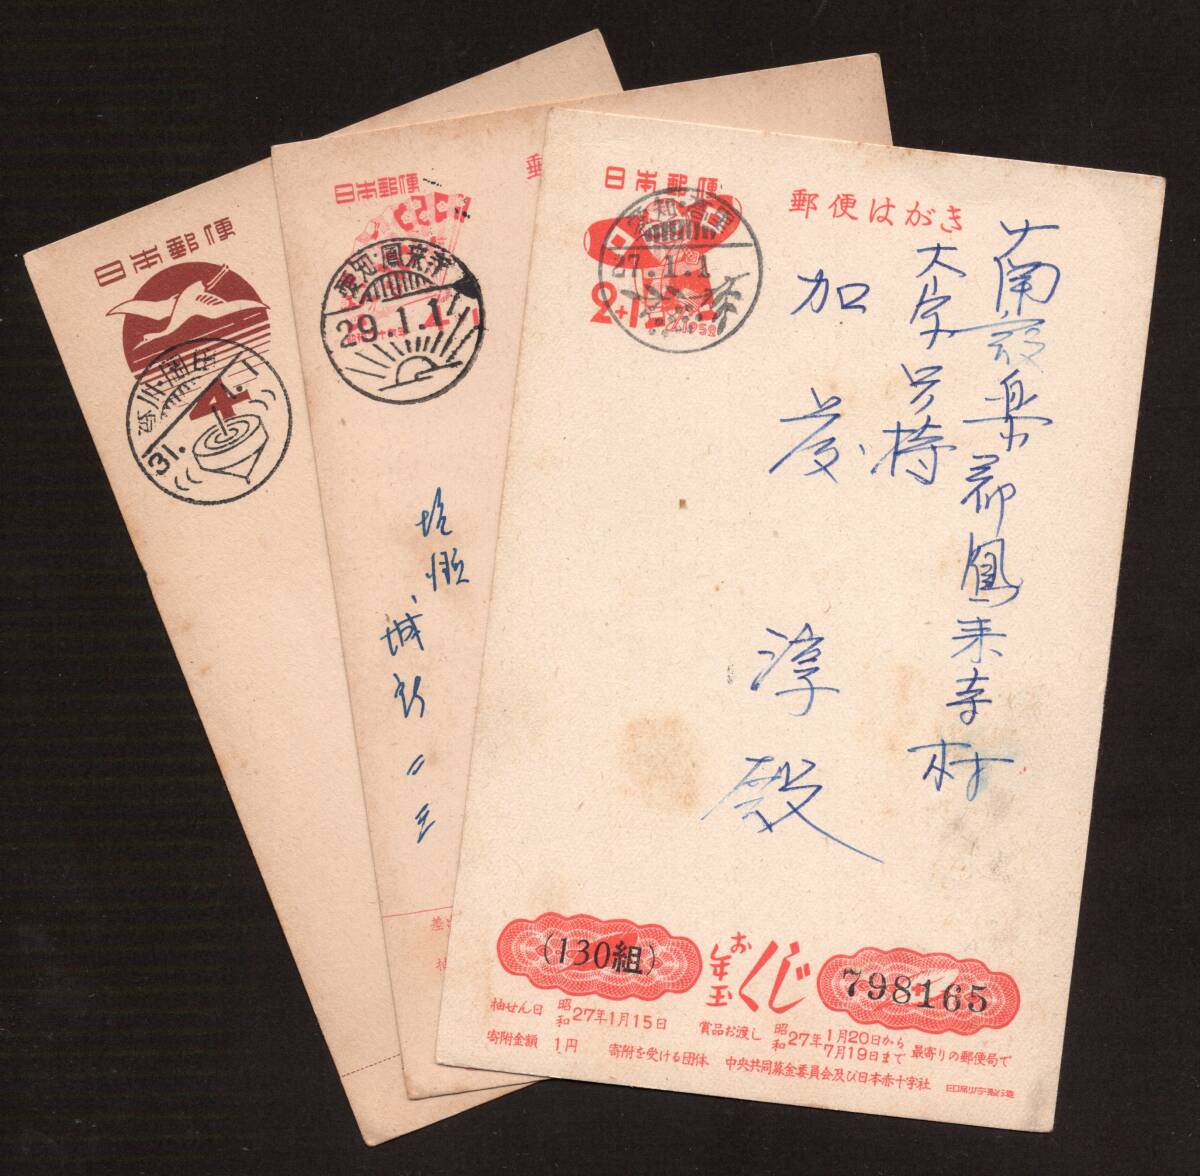 日本郵便
郵便はがき
2+1
1952
27.1.1
南設楽郡鳳来寺村
大字
加藤
淳
殿
(130組)
お年玉くじ
798165
抽せん日 昭和27年1月15日
賞品お渡し 昭和27年1月20日から7月19日まで 最寄りの郵便局で
寄附金額 1円 寄附を受ける団体 中央共同募金委員会及び日本赤十字社
印刷庁製造
日本郵便
郵
愛知・鳳来寺
29.1.1
城
日本郵便
4
31.1.1